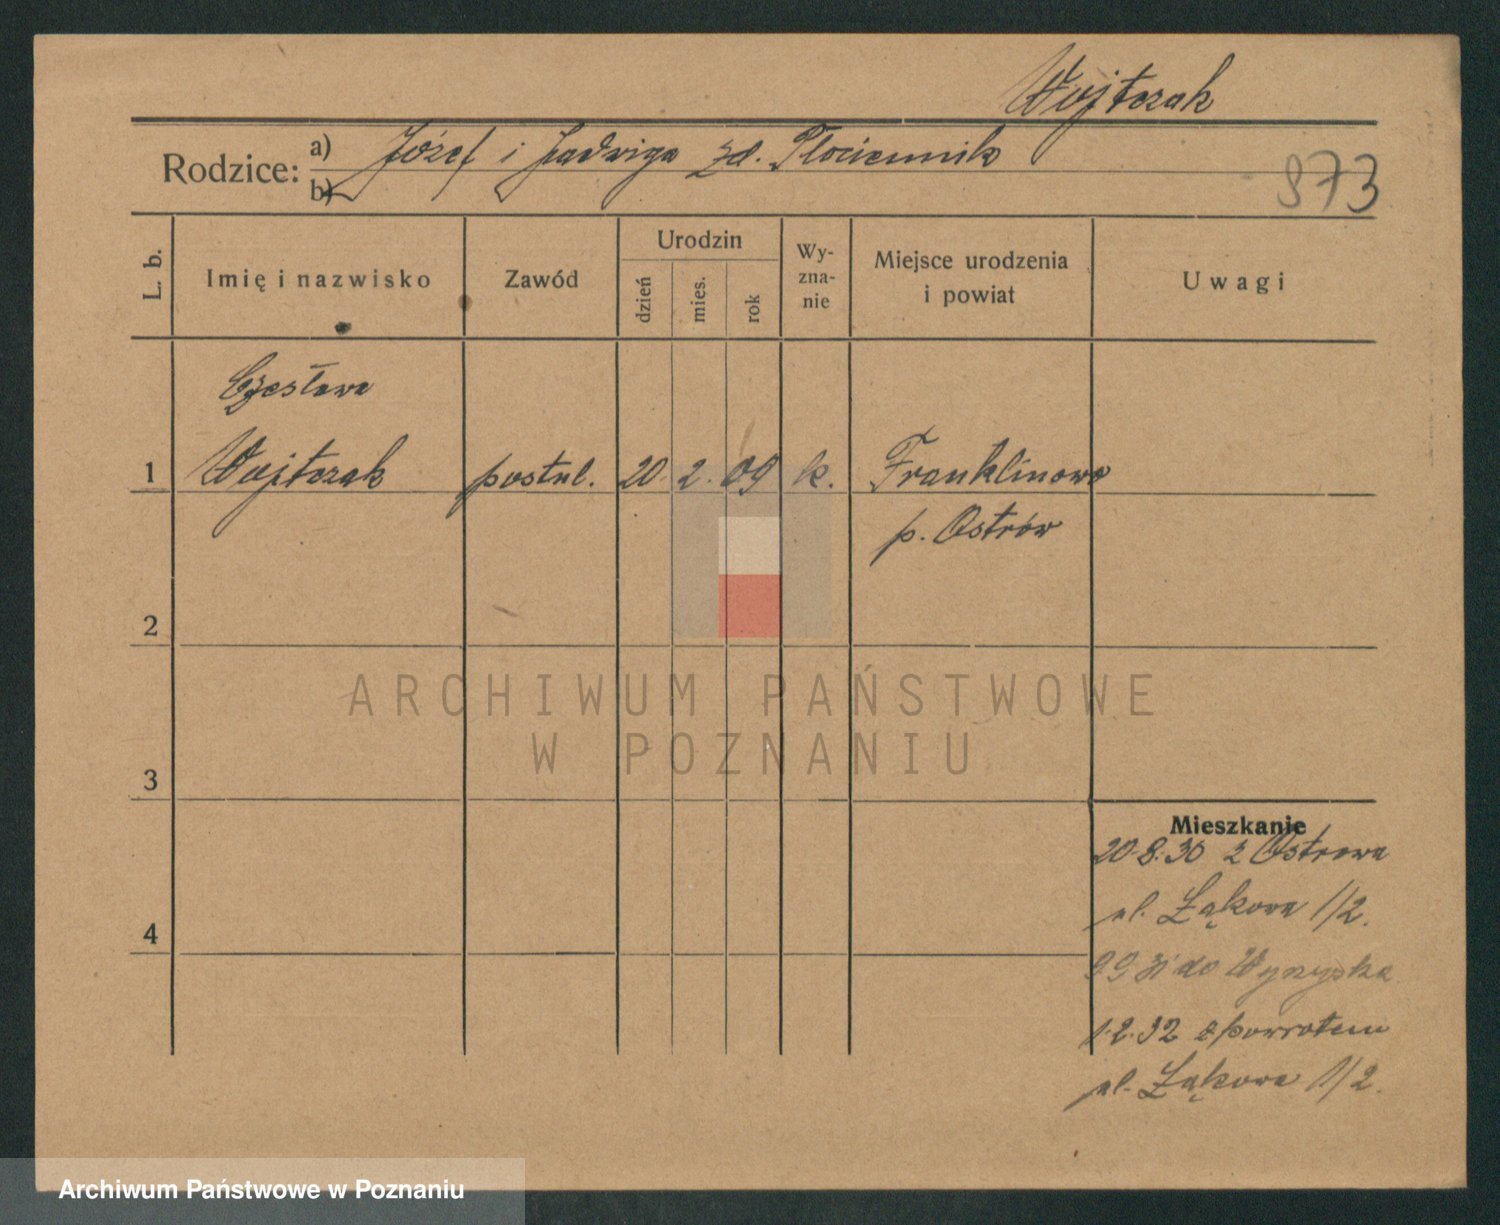 Wojtczak
Rodzice: a) Józef i Jadwiga zd. Płóciennik
b)
873
L. b.
Imię i nazwisko
Zawód
Urodzin
dzień
mies.
rok
Wy-
zna-
nie
Miejsce urodzenia
i powiat
Uwagi
Czesława
1 Wojtczak postul. 20. 2. 09 k. Franklinowo
p. Ostrów
2
3
4
Mieszkanie
20.8.30 z Ostrowa
ul. Łąkowa 1/2.
do Wyrzyska
1.2.32 z powrotem
ul. Łąkowa 1/2.
ARCHIWUM PAŃSTWOWE
W POZNANIU
Archiwum Państwowe w Poznaniu